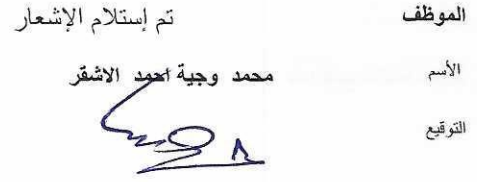 الموظف تم إستلام الإشعار
الأسم محمد وجية احمد الاشقر
التوقيع